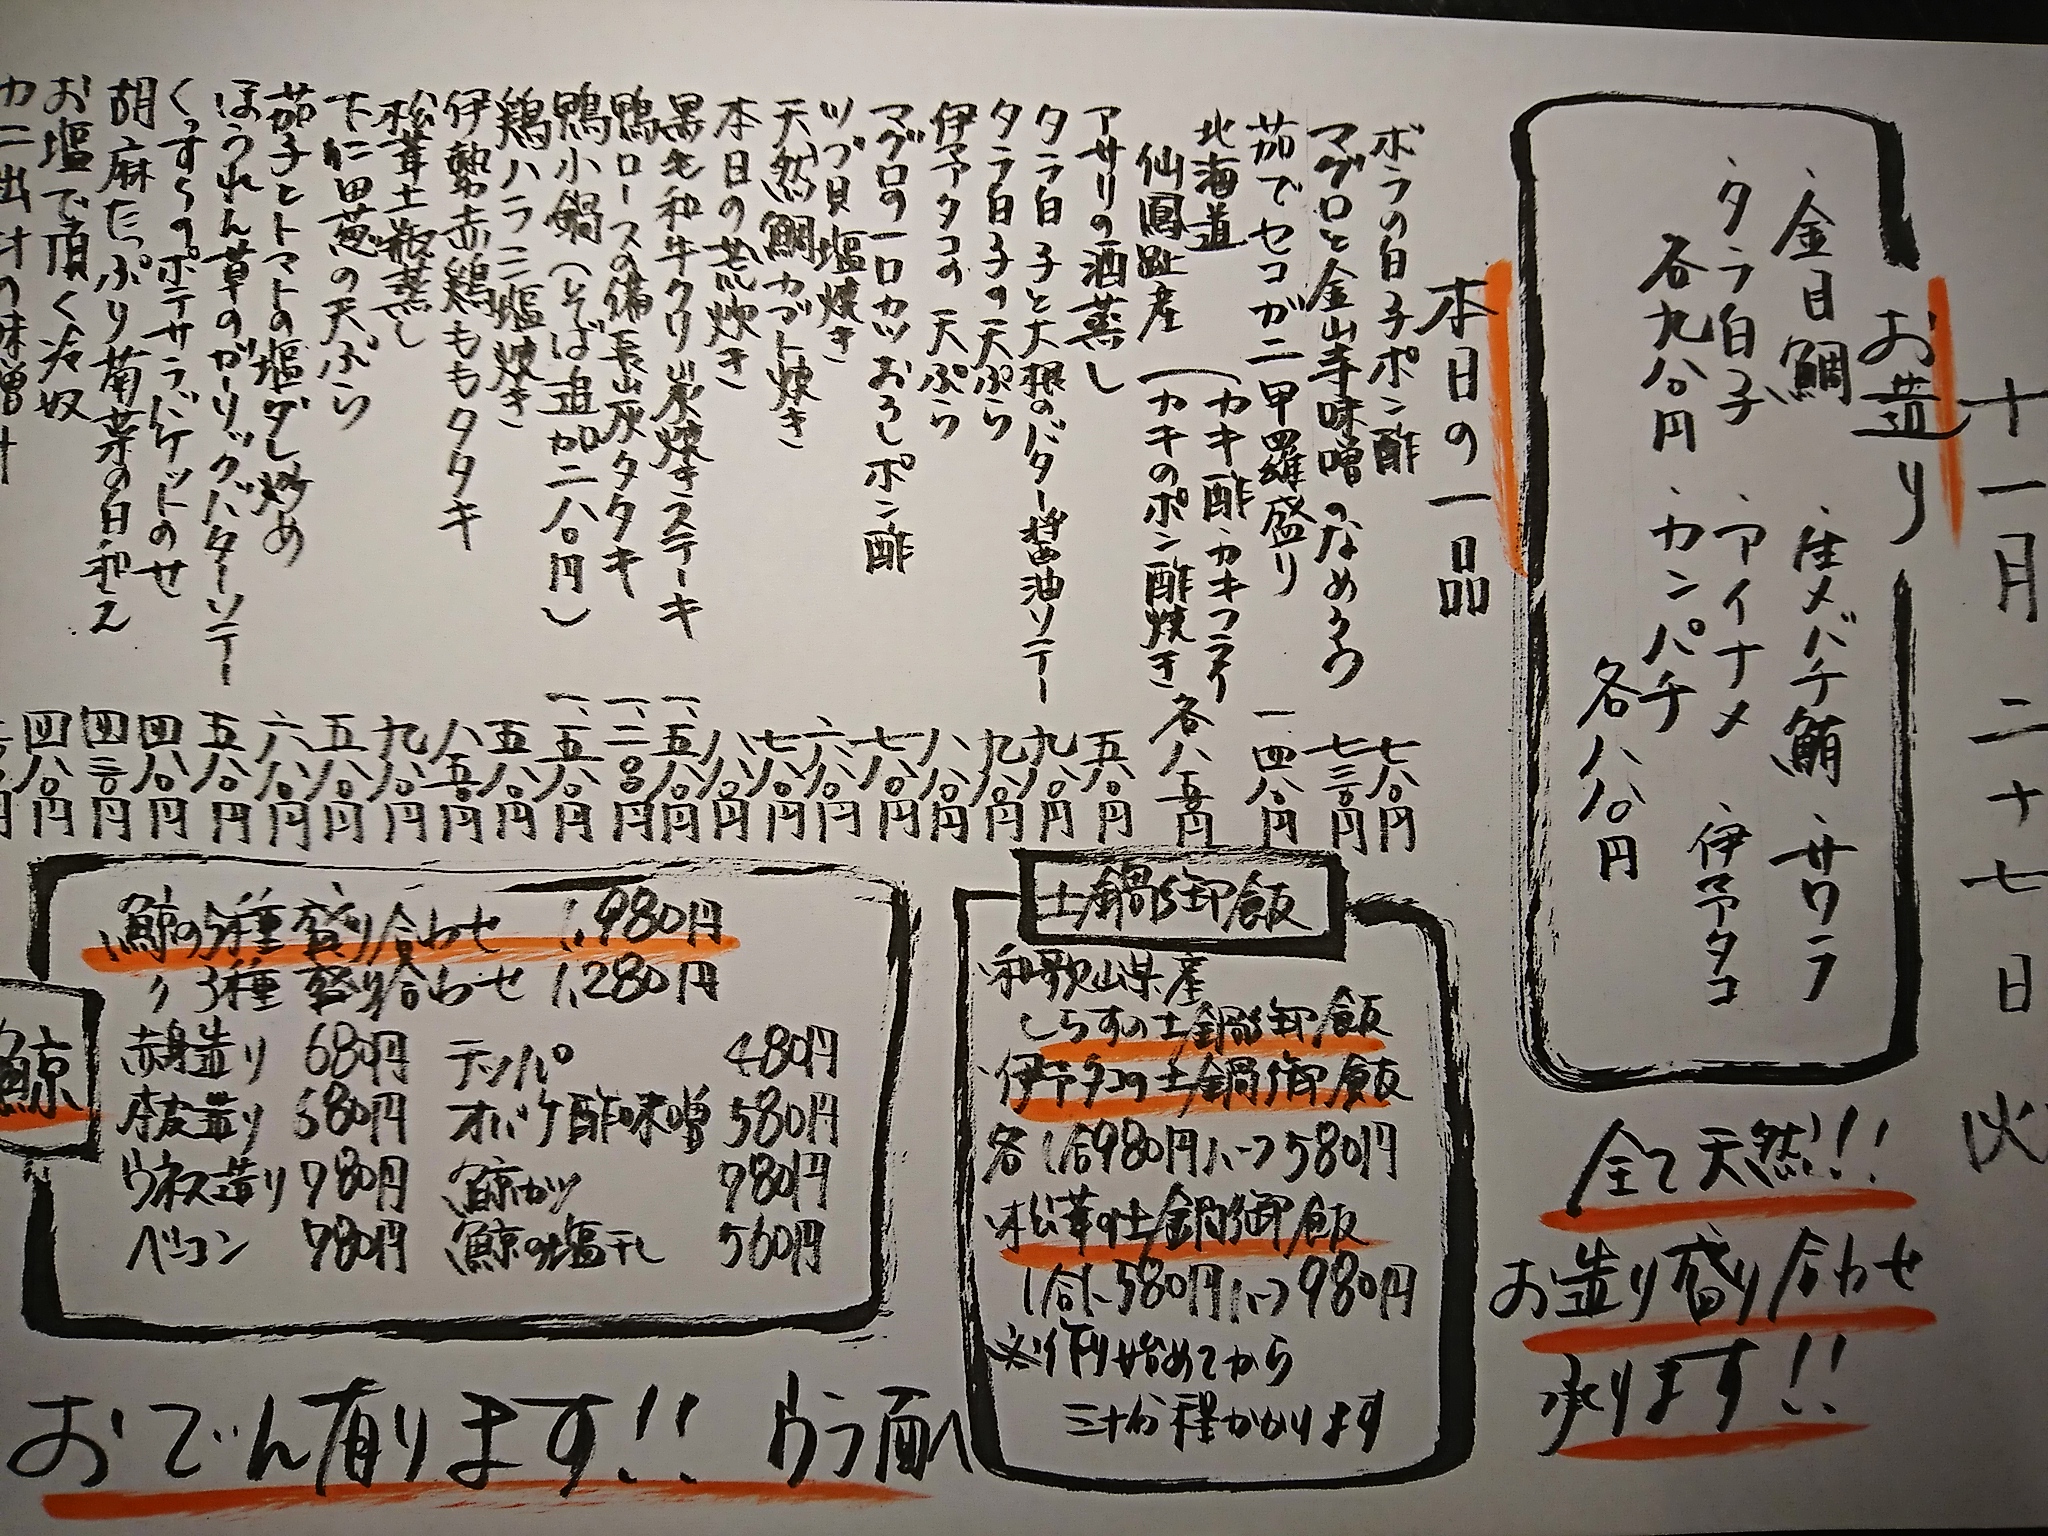 十一月二十七日 火
お造り
・金目鯛 ・生メバチ鮪 ・サワラ
・タラ白子 ・アイナメ ・伊予タコ
各九八〇円 ・カンパチ
各八八〇円
全て天然!!
お造り盛り合わせ
承ります!!
本日の一品
ボラの白子ポン酢 七八〇円
マグロと金山寺味噌のなめろう 七三〇円
茹でセコガニ甲羅盛り 一四八〇円
北海道 (カキ酢・カキフライ
仙鳳趾産 (カキのポン酢焼き 各八五〇円
アサリの酒蒸し 五八〇円
タラ白子と大根のバター醤油ソテー 九八〇円
タラ白子の天ぷら 九八〇円
伊予タコの天ぷら 八八〇円
マグロの一口カツおろしポン酢 七八〇円
ツブ貝塩焼き 六八〇円
天然鯛カブト焼き 七八〇円
本日の荒炊き 八八〇円
黒毛和牛クリ炭焼きステーキ 一、五八〇円
鴨ロースの備長炭タタキ 一、二〇〇円
鴨小鍋(そば追加二八〇円) 一、五八〇円
鶏ハラミ塩焼き 五八〇円
伊勢赤鶏ももタタキ 八五〇円
松茸土瓶蒸し 九八〇円
下仁田葱の天ぷら 五八〇円
茄子とトマトの塩ダレ炒め 六八〇円
ほうれん草のガーリックバターソテー 五八〇円
くずし ポテサラバケットのせ 四八〇円
胡麻たっぷり菊菜の白和え 四三〇円
お塩で頂く冷奴 四八〇円
カニ出汁の味噌汁
土鍋御飯
・和歌山県産
しらすの土鍋御飯
・伊予タコの土鍋御飯
各1合980円ハーフ580円
・松茸の土鍋御飯
1合1,580円ハーフ980円
※作り始めてから
三十分程かかります
鯨
・鯨の5種盛り合わせ 1,980円
〃 3種盛り合わせ 1,280円
赤身造り 680円 テッパ 480円
本皮造り 580円 オバケ酢味噌 580円
ウネス造り 780円 鯨カツ 780円
ベーコン 780円 鯨の塩干し 560円
おでん有ります!! ウラ面へ